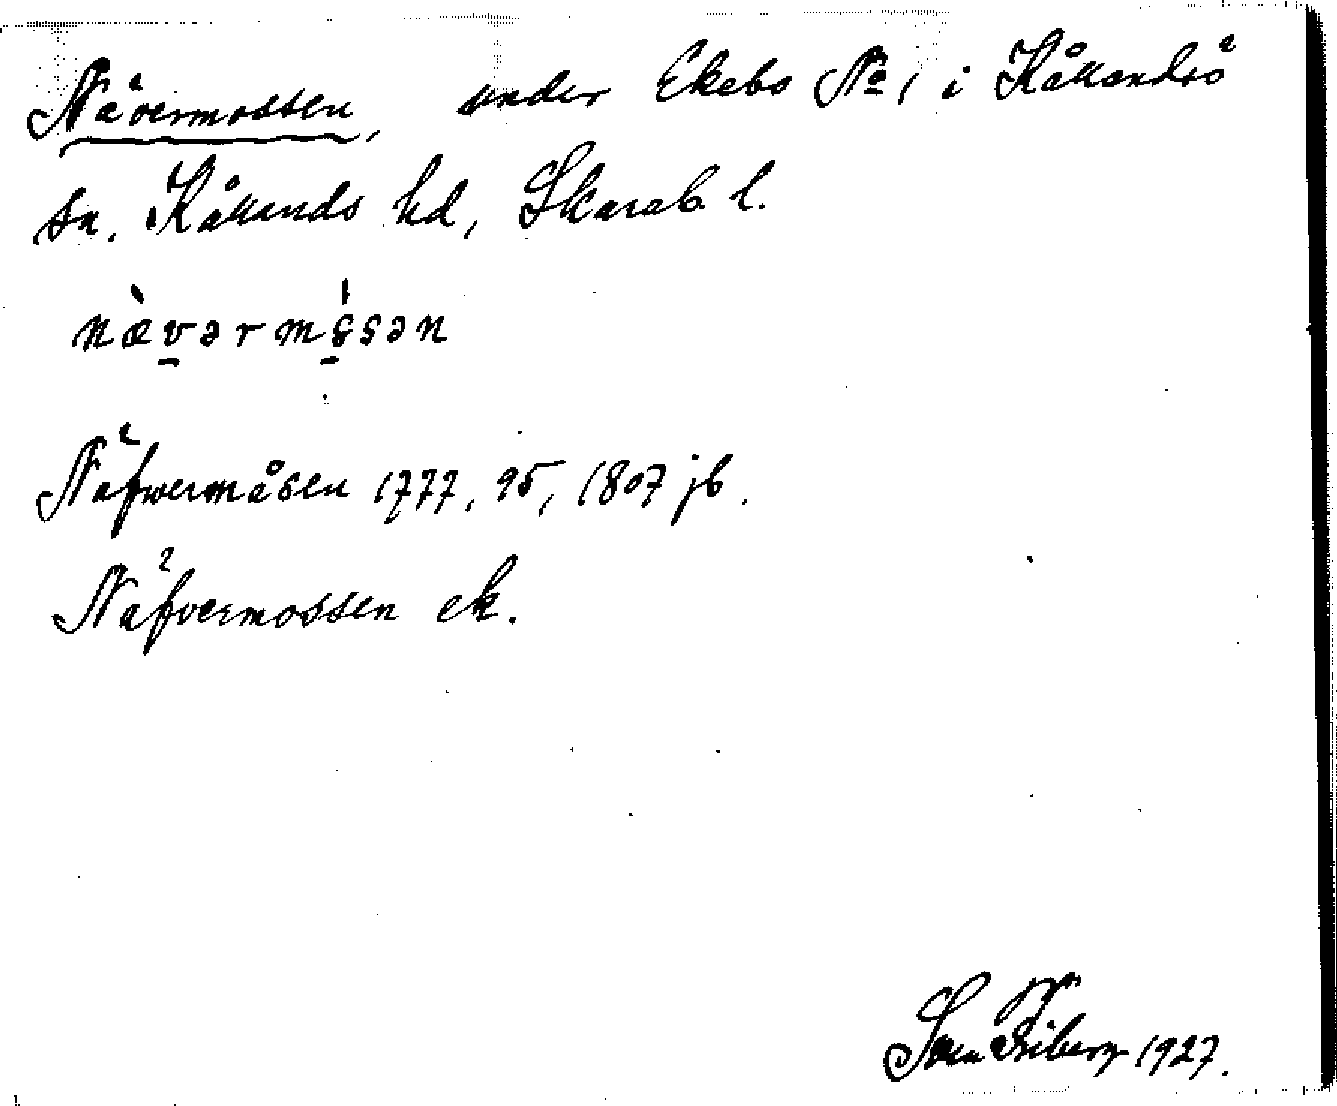 Nävermossen, under Ekebo No 1 i Kållandsö
sn. Kållands hd, Skarab l.
nævərmɷsən
Näfwermåsen 1777, 95, 1807 jb.
Näfvermossen ek.
Sven Friberg 1927.